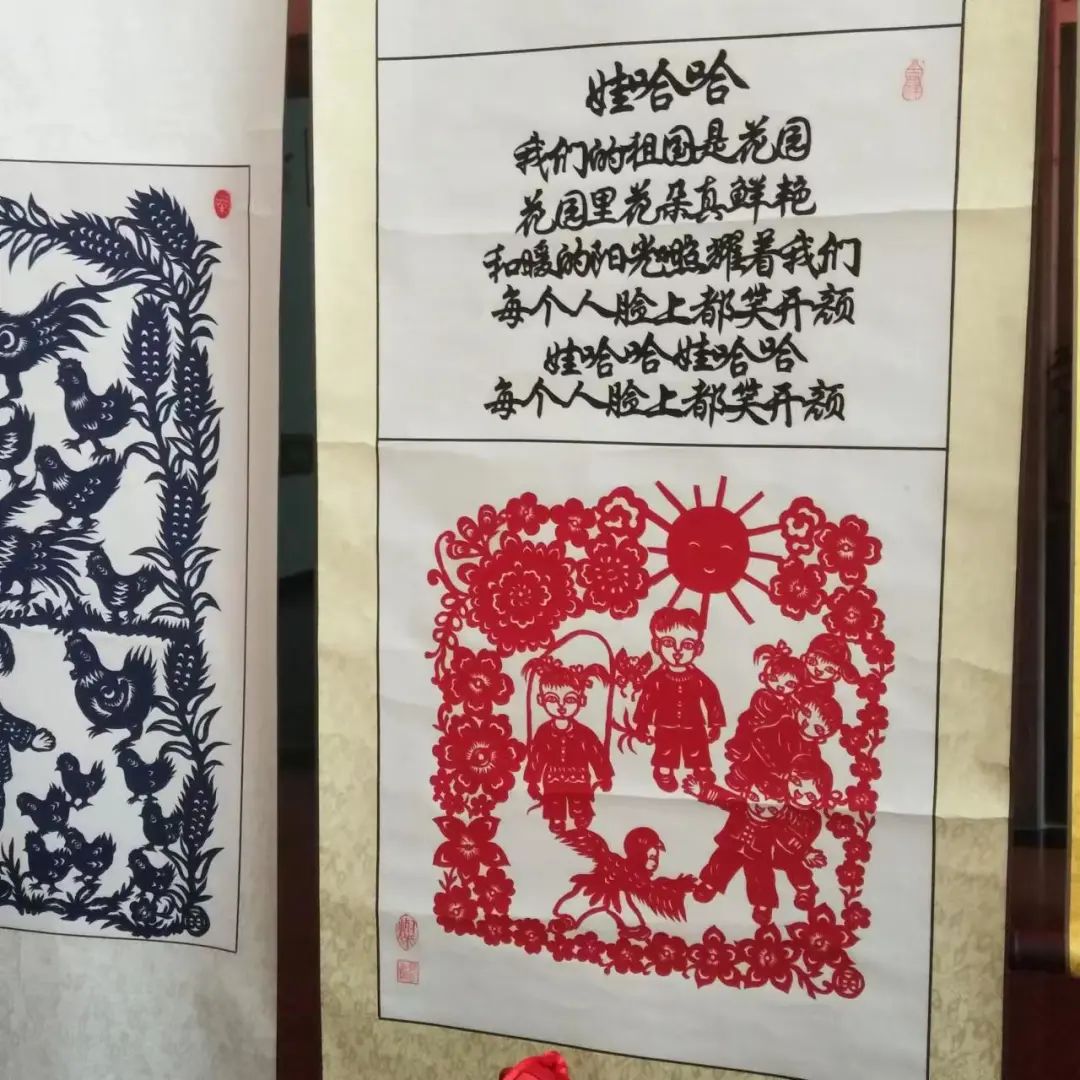 娃哈哈
我们的祖国是花园
花园里花朵真鲜艳
和暖的阳光照耀着我们
每个人脸上都笑开颜
娃哈哈娃哈哈
每个人脸上都笑开颜